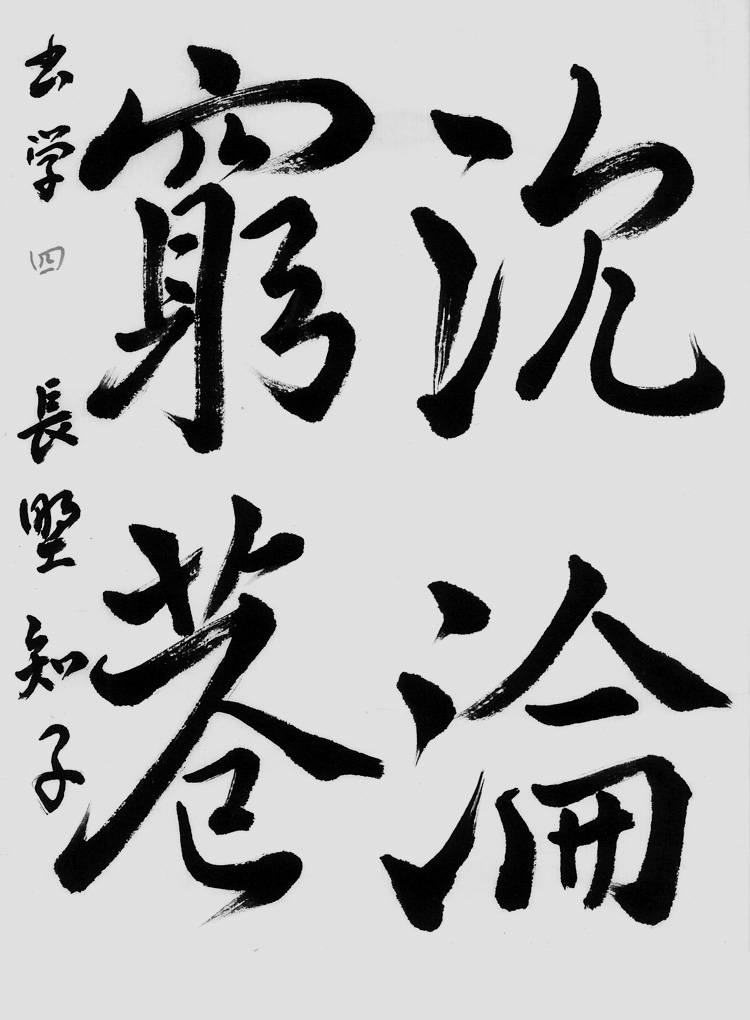 沈淪
窮巷
書学 四 長野知子